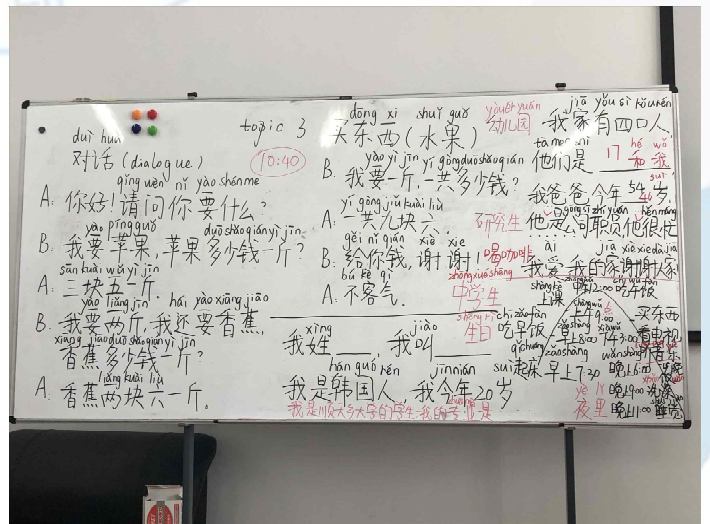 topic 3
duì huà
对话 (dialogue)
10:40
qǐng wèn nǐ yào shén me
A: 你好!请问你要什么?
yào píng guǒ duō shǎo qián yì jīn
B: 我要苹果,苹果多少钱一斤?
sān kuài wǔ yì jīn
A: 三块五一斤.
yào liǎng jīn hái yào xiāng jiāo
B. 我要两斤,我还要香蕉,
xiāng jiāo duō shǎo qián yì jīn
香蕉多少钱一斤?
liǎng kuài liù
A: 香蕉两块六一斤.
dōng xi shuǐ guǒ
买东西(水果)
yào yì jīn yí gòng duō shǎo qián
B. 我要一斤,一共多少钱?
yí gòng jiǔ kuài liù
A: 一共九块六.
gěi nǐ qián xiè xie
B: 给你钱,谢谢!
bú kè qi
A: 不客气.
xìng jiào
我姓___,我叫___
hán guó rén jīn nián suì
我是韩国人,我今年20岁
我是顺天乡大学的学生,我的专业是
yòu ér yuán
幼儿园
研究生
喝咖啡
zhōng xué shēng
中学生
shēng rì
生日
jiā yǒu sì kǒu rén
我家有四口人
tā men shì hé wǒ
他们是 17 和我
suì
我爸爸今年 54 岁.
46
gōng sī zhí yuán hěn máng
他是公司职员他很忙
ài jiā xiè xie dà jiā
我爱我的家谢谢大家
shàng kè
上课
中午12:00吃午饭
chī zǎo fàn
吃早饭
上午9:00
早上8:00
下午3:00
买东西
看电视
qǐ chuáng zǎo shang
起床早上7:30
wǎn shang
晚上6:00
晚上9:00洗澡
yè lǐ
夜里
晚上11:00睡觉